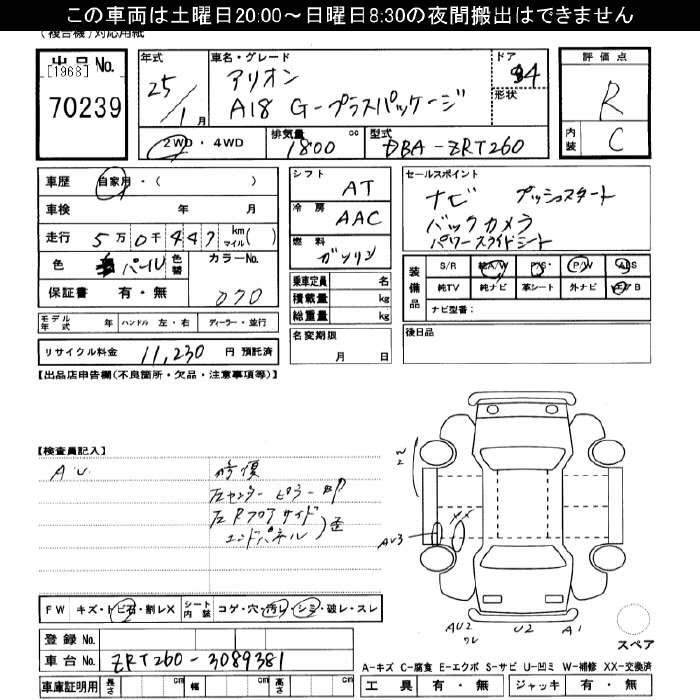 この車両は土曜日20:00～日曜日8:30の夜間搬出はできません
(複合機)対応用紙
出品No.
[1968]
70239
年式 25/1月
車名・グレード アリオン
A18 G-プラスパッケージ
ドア 4
形状
2WD・4WD
排気量 1800 cc
型式 DBA-ZRT260
評価点 R
内装 C
車歴 自家用・( )
車検 年 月
走行 5万0千447 km マイル( )
色 パール 色替 カラーNo. 070
保証書 有・無
シフト AT
冷房 AAC
燃料 ガソリン
乗車定員 名
積載量 kg
総重量 kg
名変期限 月 日
セールスポイント
ナビ プッシュスタート
バックカメラ
パワースライドシート
装備品
S/R 純A/W P/S P/W ABS
純TV 純ナビ 革シート 外ナビ エアB
ナビ型番:
後日品
モデル年式 年 ハンドル 左・右 ディーラー・並行
リサイクル料金 11,230 円 預託済
【出品店申告欄(不良箇所・欠品・注意事項等)】
【検査員記入】
AU 修復
左センターピラー
左Rフロアサイド
エンドパネル 歪
W2
AU3
XX
AU2
U2
A1
スペア
FW キズ・トビ石・割レX シート内装 コゲ・穴・汚レ・シミ・破レ・スレ
登録No.
車台No. ZRT260-3089381
A-キズ C-腐食 E-エクボ S-サビ U-凹ミ W-補修 XX-交換済
車庫証明用 長さ cm 幅 cm 高さ cm
工具 有・無 ジャッキ 有・無